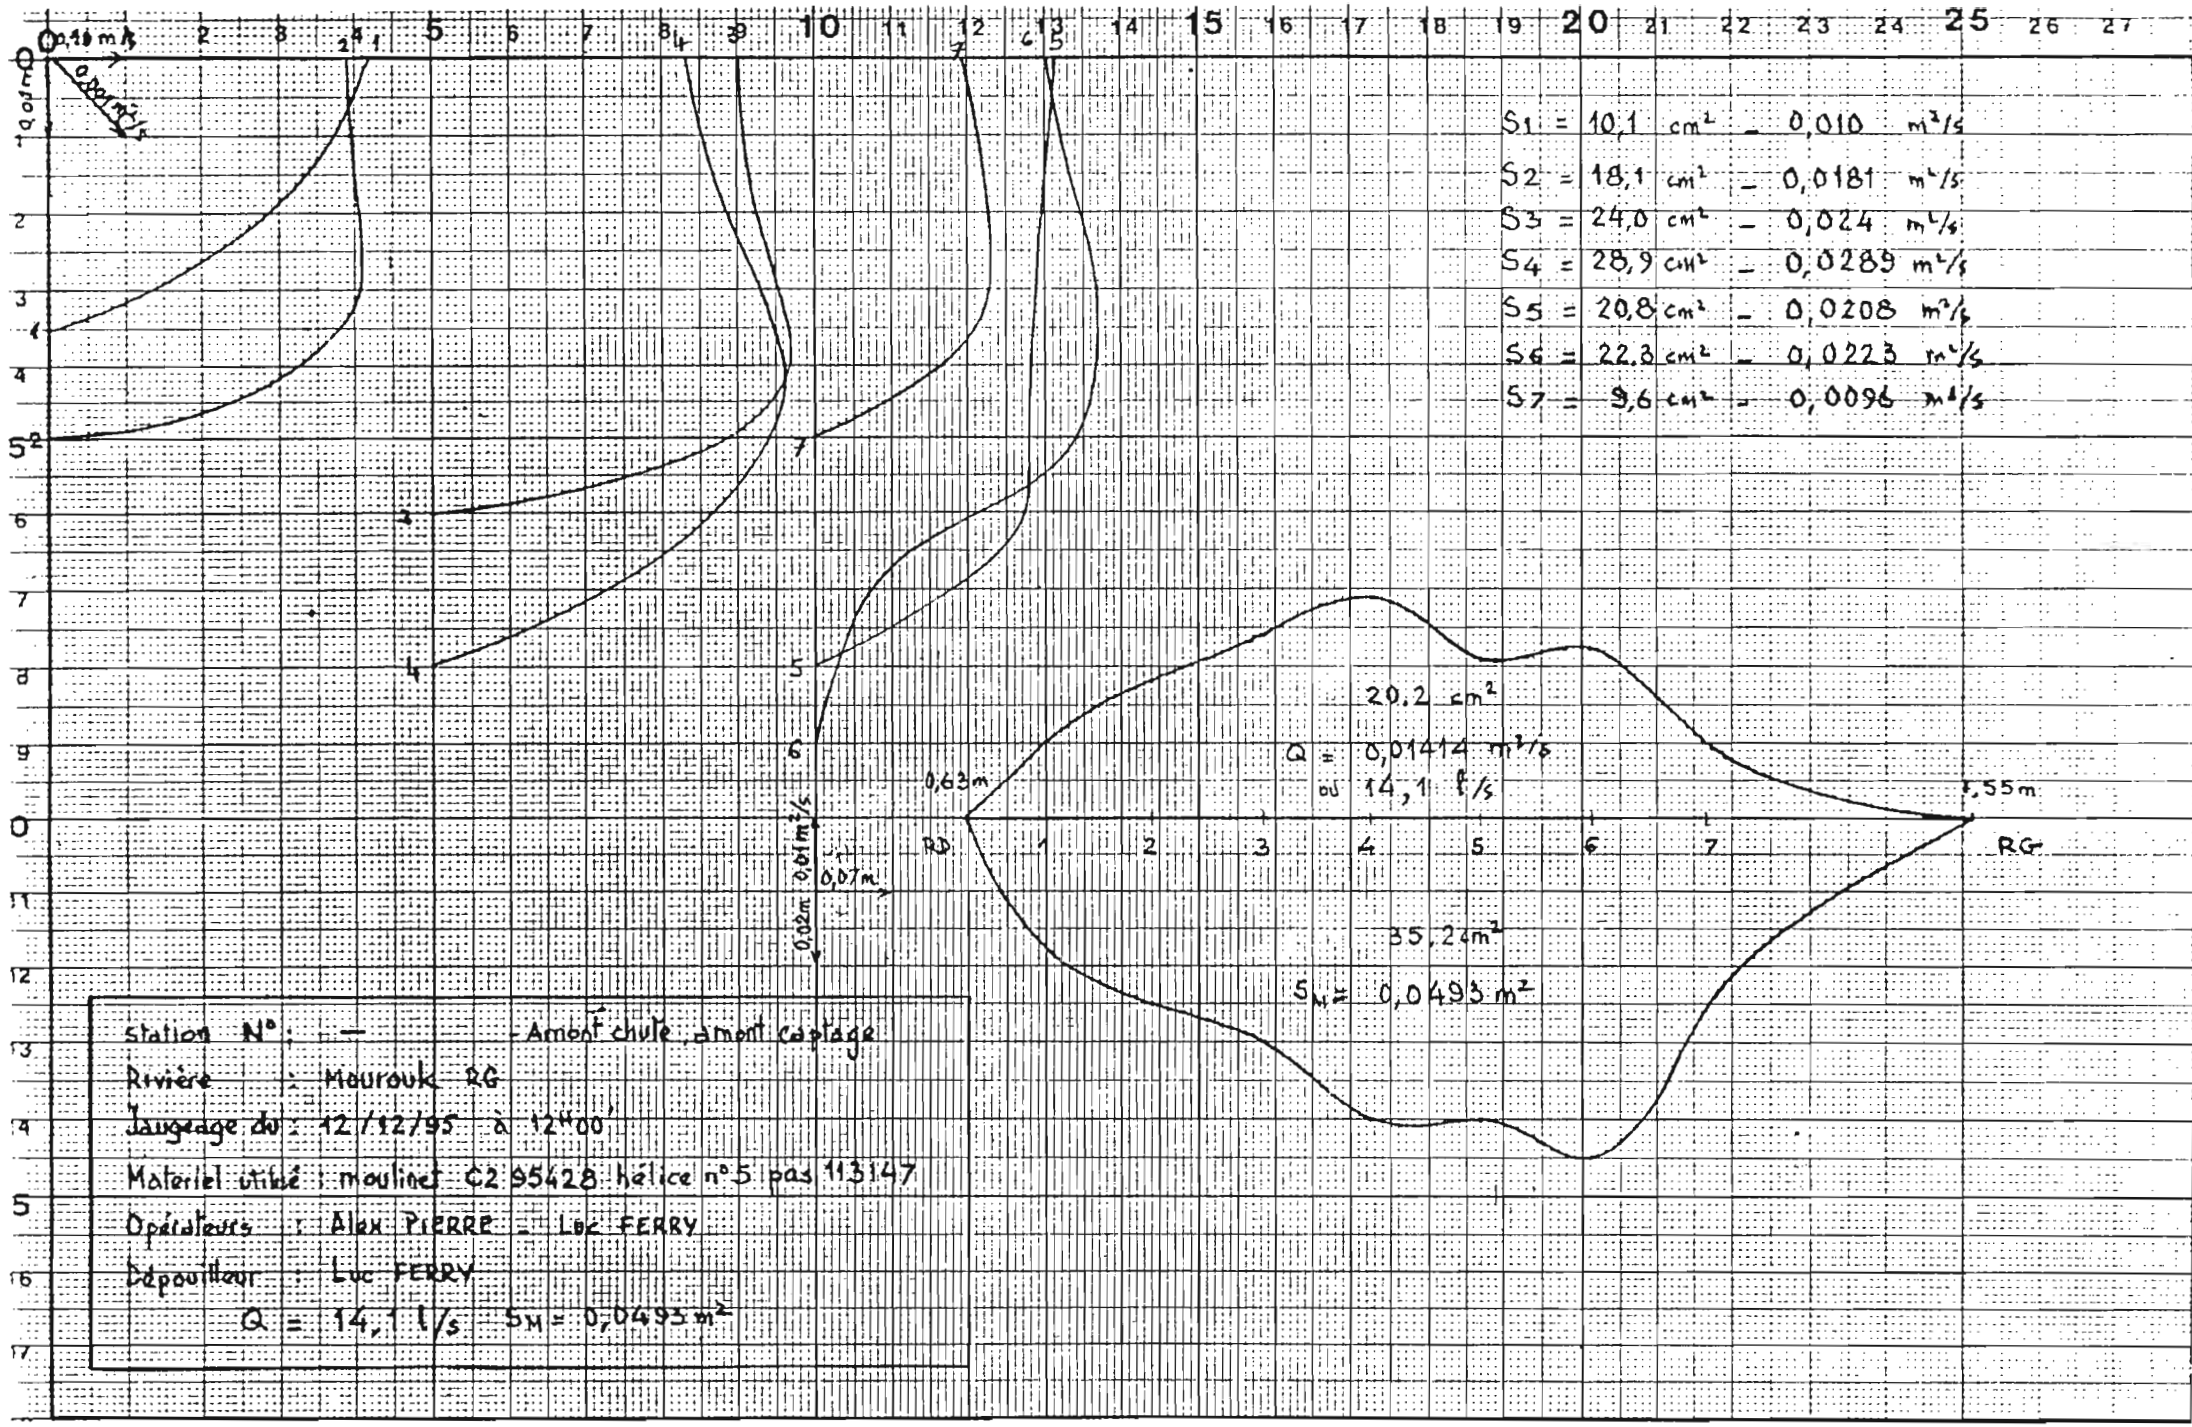 0 2 3 4 5 6 7 8 9 10 11 12 13 14 15 16 17 18 19 20 21 22 23 24 25 26 27
0,10 m/s
2 1 4 3 7 6 5
0
0,01 m
0,001 m²/s
1
2
3
1
4
5 2
7
3
6
7
4
8
5
9
6
S1 = 10,1 cm² – 0,010 m²/s
S2 = 18,1 cm² – 0,0181 m²/s
S3 = 24,0 cm² – 0,024 m²/s
S4 = 28,9 cm² – 0,0289 m²/s
S5 = 20,8 cm² – 0,0208 m²/s
S6 = 22,3 cm² – 0,0223 m²/s
S7 = 9,6 cm² – 0,0096 m²/s
20,2 cm²
Q = 0,01414 m³/s
ou 14,1 l/s
0,63 m
1,55 m
0
RD 1 2 3 4 5 6 7 RG
0,02m 0,01m²/s
0,07m
11
12
13
14
15
16
17
35,2 cm²
SM = 0,0493 m²
Station N° : — - Amont chute, amont captage
Rivière : Mourouk RG
Jaugeage du : 12/12/95 à 12H00'
Materiel utilisé : moulinet C2 95428 hélice n°5 pas 113147
Opérateurs : Alex PIERRE – Luc FERRY
Dépouilleur : Luc FERRY
Q = 14,1 l/s SM = 0,0493 m²